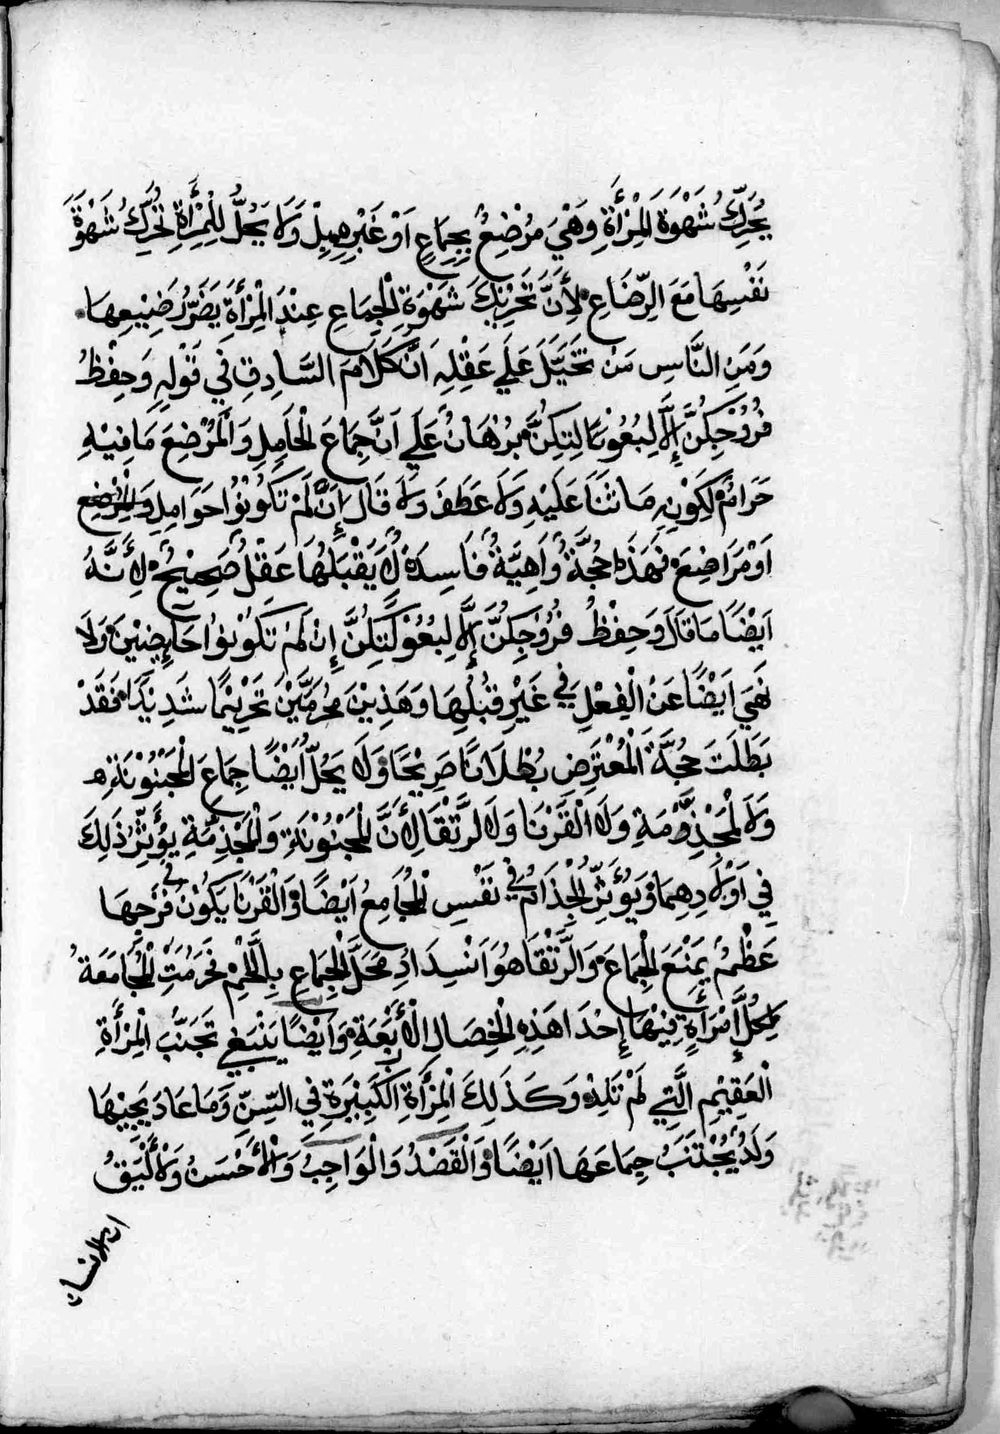 يُحَرِّكُ شَهْوَةَ الْمِرْأَةِ وَهْيَ مُرْضِعٌ بِجِمَاعٍ اَوْ غَيْرِهِ وَلَا يَحُلُّ لِلْمِرْأَةِ تَحْرِكُ شَهْوَةَ
نَفْسِهَا مَعَ الرِّضَاعِ لِأَنَّ تَحْرِيْكَ شَهْوَةِ الْجِمَاعِ عِنْدَ الْمِرْأَةِ يَضُرُّ رَضِيْعِهَا
وَمِنَ النَّاسِ مَنْ تَخَيَّلَ عَلَي عَقْلِهِ اَنَّ كَلَامَ السَّادِقِ فَي قَوْلِهِ وَحِفْظُ
فُرُوْجِكُنَّ إِلَّا لِبُعُوْلَتِكِنَّ بُرْهَانٌ عَلَي اَنَّ جِمَاعَ الْحَامِلِ وَالْمُرْضِعَ مَا فِيْهِ
حَرَامٌ لِكَوْنِهِ مَا ثَنَا عَلَيْهِ وَلَا عَطَفَ وَلَا قَالَ إِنْ لَمْ تَكُوْنُوْا حَوَامِلِ وَالمُرْضِع
اَوْ مَرَاضِعَ فَهَذَا حُجَّةٌ وَاهِيَّةٌ فَاسِدَةٌ لَا يَقْبَلُهَا عَقْلٌ صَحِيْحٌ لِأَنَّهُ
اَيْضًا مَا قَالَ وَحِفْظُ فُرُوْجِكِنَّ إِلَّا لِبُعُوْلَتِكِنَّ إِنْ لَمْ تَكُوْنُوْا حَايِضِيْنَ وَلَا
نَهَيَ اَيْضًا عَنْ الْفِعْلِ فِي غَيْرِ قُبُلِهَا وَهَذِيْنَ مُحَرَّمَيْنِ تَحْرِيْمًا شَدِيْدًا فَقَدْ
بَطَلَتْ حُجَّةَ الْمُعْتَرِضِ بُطْلَانًا صَرِيْحًا وَلَا يَحُلُّ اَيْضًا جِمَاعَ الْمَجْنُوْنَةِ
وَلَا الْمُجَذَّمَةِ وَلَا الْقَرْنَا وَلَا الرَّتْقَا لِأَنَّ الْمَجْنُوْنَةِ وَالْمُجَذَّمَةِ يُؤَثِّرُ ذَلِكَ
فِي اَوْلَادِهِمَا وَيُؤَثِّرُ الْجِذَامُ فِي نَفْسِ الْمُجَامِعُ اَيْضًا وَالْقَرْنَا يَكُوْنُ فِي فَرْجِهَا
عَظْمٌ يَمْنَعُ الْجِمَاعَ وَالرَّتْقَا هُوَ اَنْسِدَادِ مَحَلَّ الْجِمَاعِ بِاللَّحْمِ فَحَرُمَتْ الْمُجَامَعَةُ
لِكُلِّ إِمْرَأَةٍ فِيْهَا إِحْدَا هَذِهِ الْخِصَالِ الْأَرْبَعَةِ وَاَيْضًا يَنْبَغِي تَجَنُّبُ الْمِرْأَةِ
الْعَقِيْمِ الَّتِي لَمْ تَلِدْ وَكَذَلِكَ الْمِرْأَةِ الْكَبِيْرَةِ فِي السِّنِّ وَمَا عَادَ يَجِيْهَا
وَلَدٌ يُجْتَنَبُ جِمَاعَهَا اَيْضًا وَالْقَصْدُ وَالْوَاجِبُ وَالْأَحْسَنُ وَالْأَلْيَقُ
ان الانسان